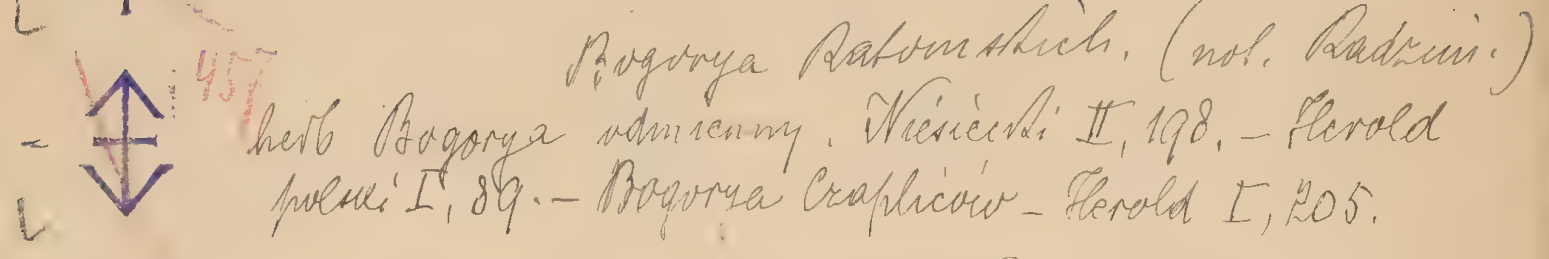 457
Bogorya Ratomskich. (not. Radzim.)
herb Bogorya odmienny. Niesiecki II, 198. – Herold
polski I, 89. – Bogorya Czapliców – Herold I, 205.